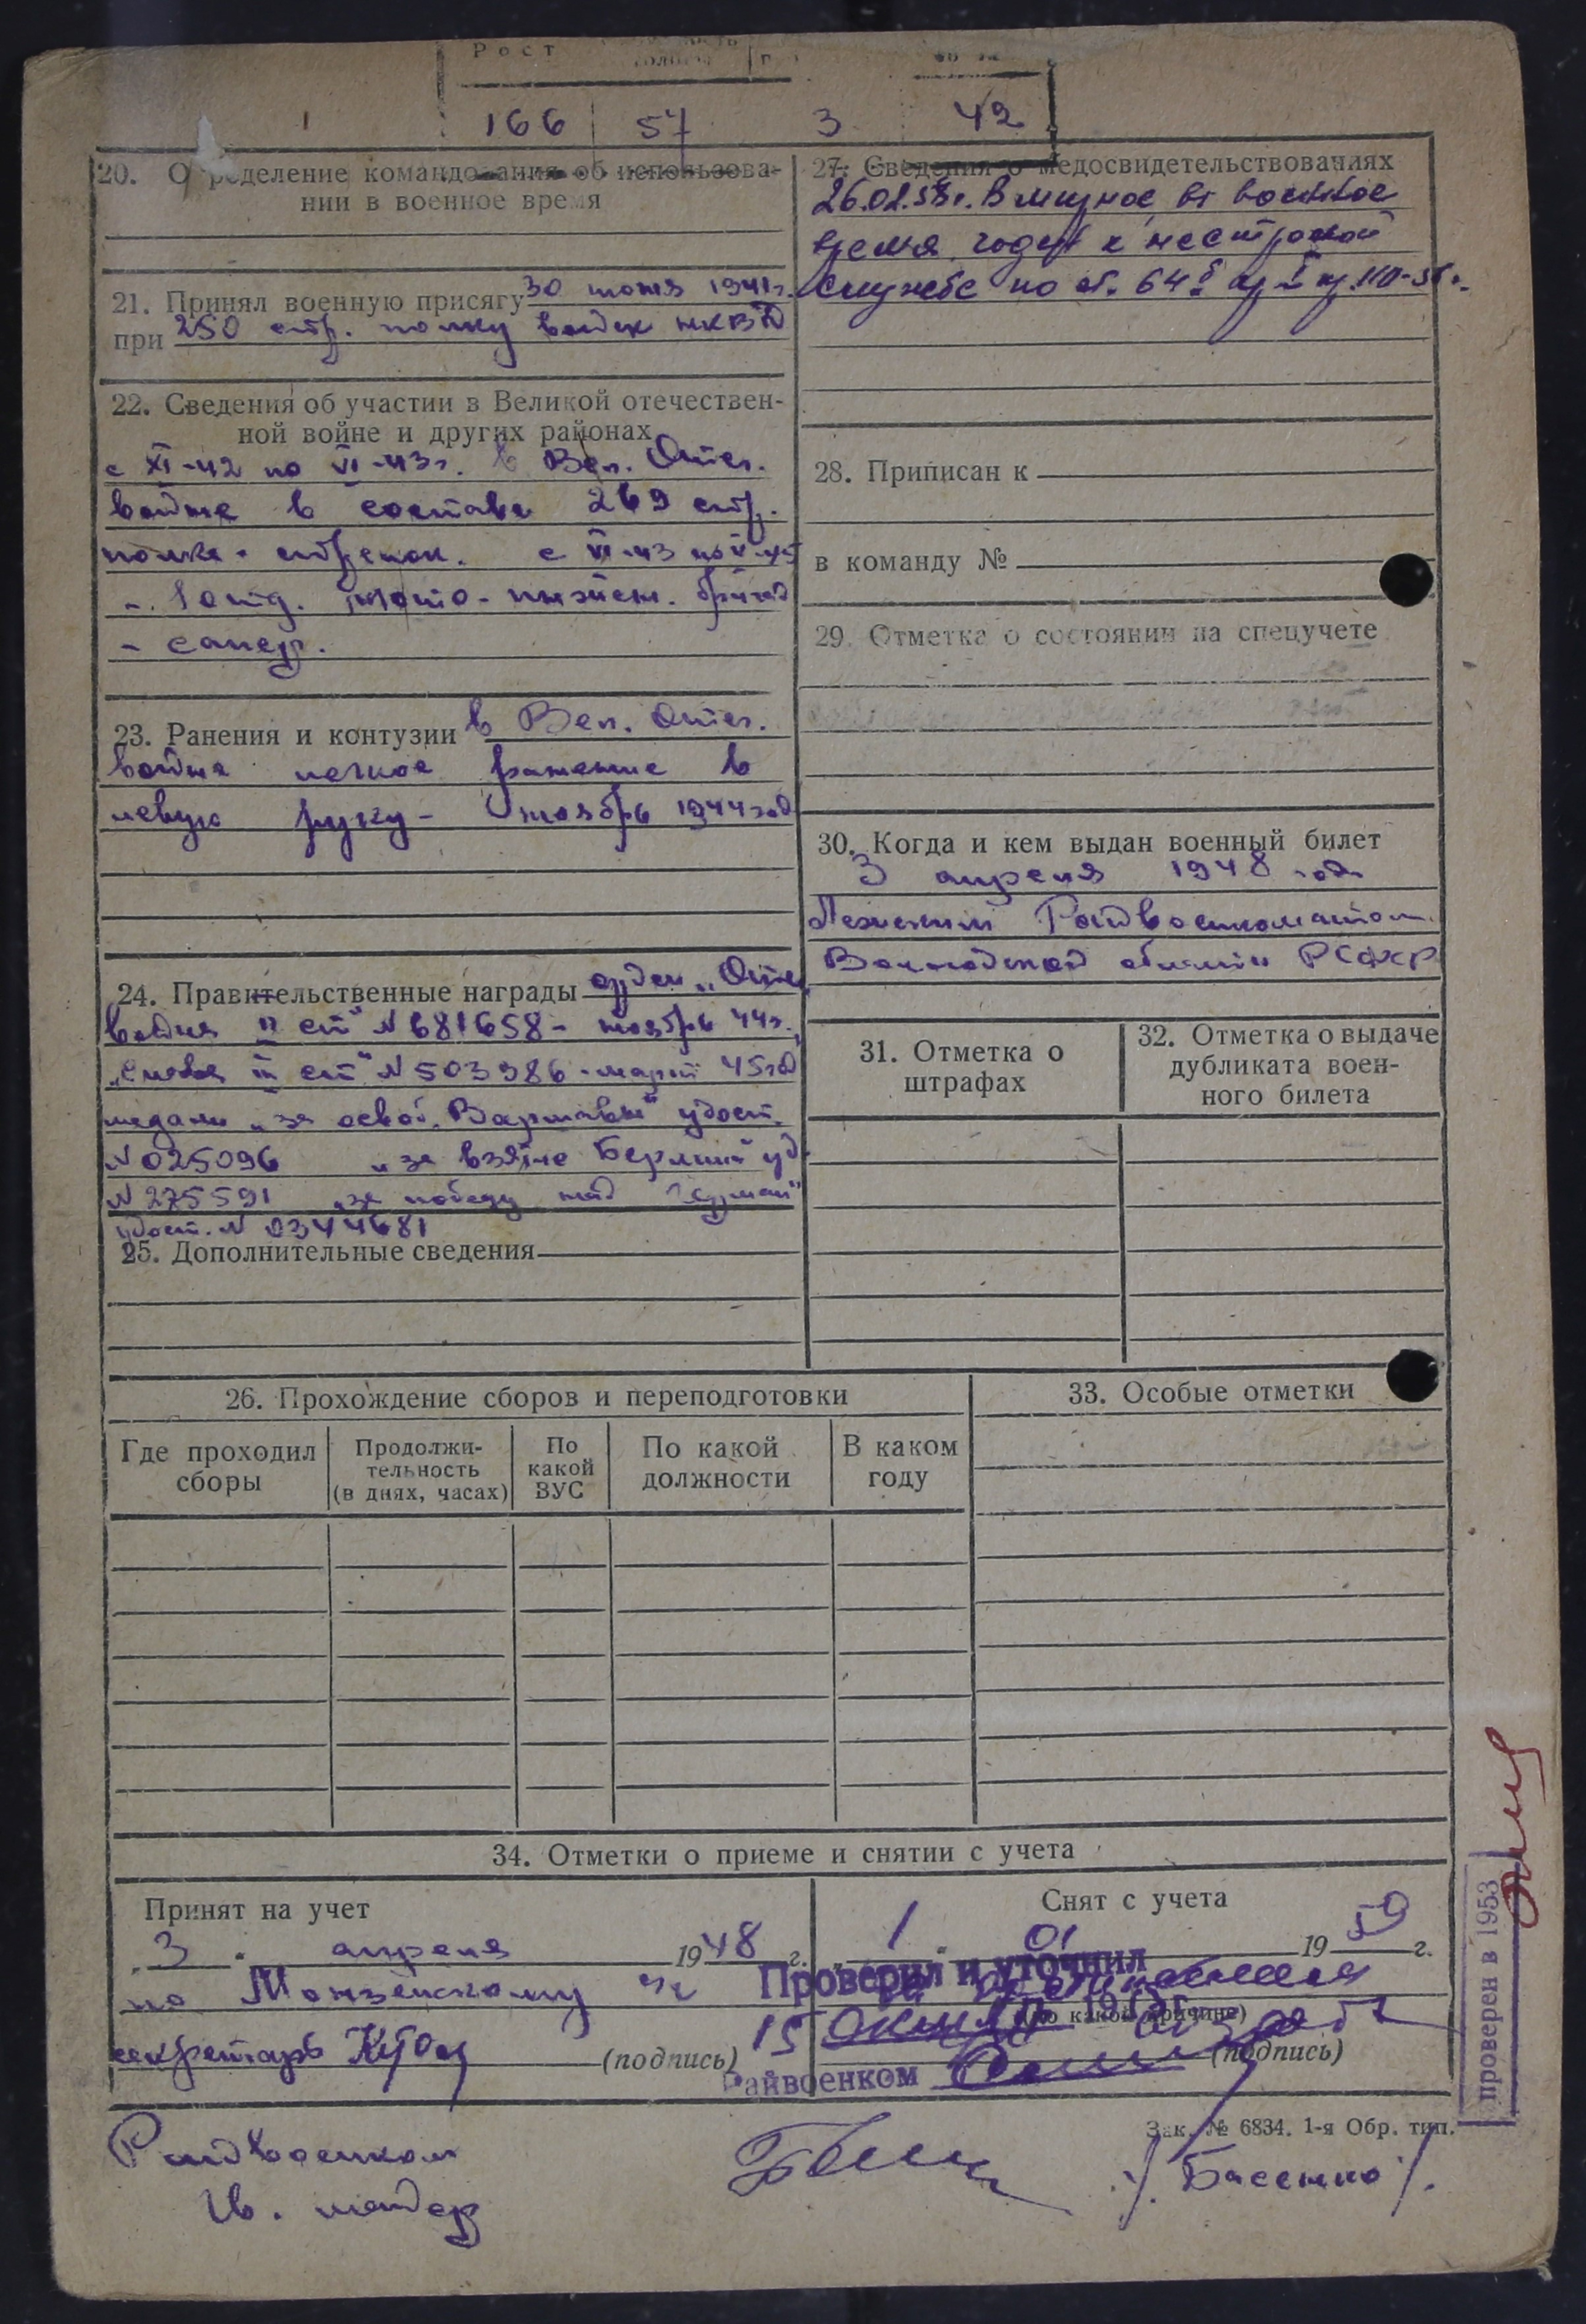 Рост
166 57 3 42
20. Определение командования об использова-
нии в военное время
21. Принял военную присягу 30 июня 1941г.
при 250 стр. полку войск НКВД
22. Сведения об участии в Великой отечествен-
ной войне и других районах
с XI-42 по VI-43г. в Вел. Отеч.
войне в составе 269 стр.
полка - стрелок. с VI-43 по V-45
- 1 отд. мото-инжен. бригад
- сапер.
23. Ранения и контузии в Вел. Отеч.
войне легкое ранение в
левую руку - ноябрь 1944 год
24. Правительственные награды орден „Отеч.
войны II ст" N 681658 - ноябрь 44г.
„Слава III ст" N 503986 - март 45год
медали „за освоб. Варшавы" удост.
N 025096 „за взятие Берлина" уд.
N 275591 „за победу над Герман"
удост. N 0344681
25. Дополнительные сведения
27. Сведения о медосвидетельствованиях
26.02.58г. В мирное, в военное
время годен к нестроевой
службе по ст. 64 пр.
28. Приписан к
в команду №
29. Отметка о состоянии на спецучете
30. Когда и кем выдан военный билет
3 апреля 1948 года
Лежским Райвоенкоматом
Вологодской области РСФСР
31. Отметка о
штрафах
32. Отметка о выдаче
дубликата воен-
ного билета
26. Прохождение сборов и переподготовки
Где проходил
сборы
Продолжи-
тельность
(в днях, часах)
По
какой
ВУС
По какой
должности
В каком
году
33. Особые отметки
34. Отметки о приеме и снятии с учета
Принят на учет
„3" апреля 1948 г.
по Монзенскому
секретарь
(подпись)
Снят с учета
1 01 1959 г.
Проверил и уточнил
(по какой причине)
15
(подпись)
Райвоенком
проверен в 1953
Зак. № 6834. 1-я Обр. тип.
Райвоенком
Гв. майор
/Басенко/.